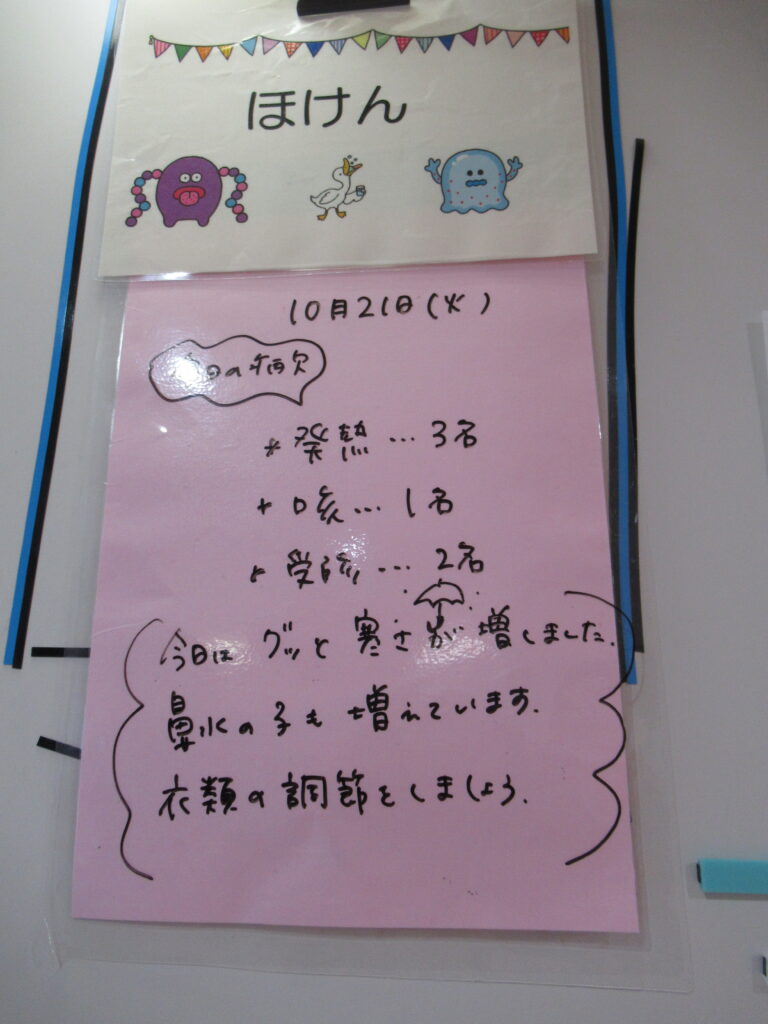 ほけん
10月21日(火)
今日の病欠
* 発熱…3名
* 咳…1名
* 受診…2名
今日は グッと 寒さが 増しました.
鼻水の子も 増えています.
衣類の調節をしましょう.